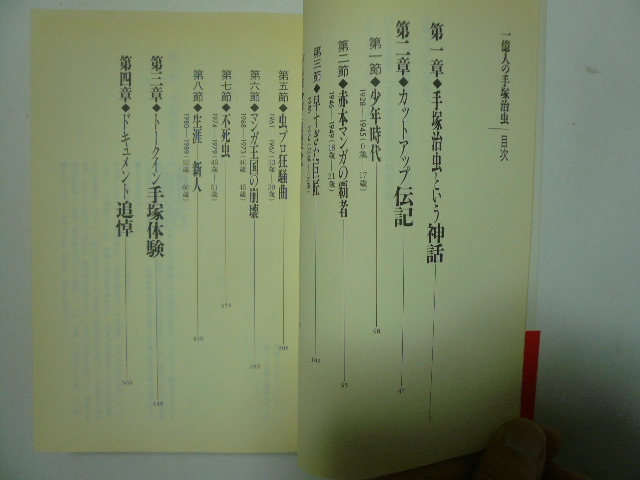 一億人の手塚治虫 目次
第一章◆手塚治虫という神話
第二章◆カットアップ伝記 47
第一節◆少年時代 49
1928—1945(0歳—17歳)
第二節◆赤本マンガの覇者 95
1946—1949(18歳—21歳)
第三節◆早すぎた巨匠
第五節◆虫プロ狂騒曲
1961—1967(33歳—39歳)
第六節◆マンガ王国の崩壊
1968—1973(40歳—45歳)
第七節◆不死虫
1974—1979(46歳—51歳)
第八節◆生涯一新人 410
1980—1989(52歳—60歳)
第三章◆トークイン手塚体験
第四章◆ドキュメント追悼